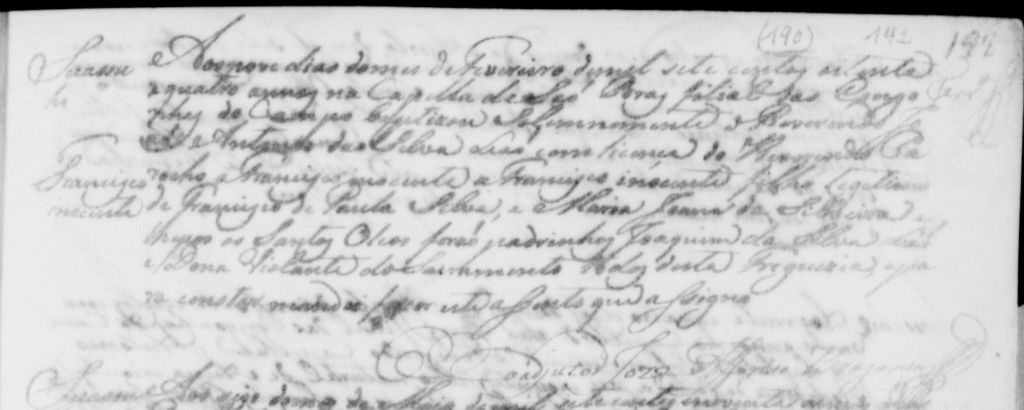 (190) 142
Aos nove dias do mes de Fevereiro de mil sete centos oitenta
e quatro annos na Capella de São Bras filial das Congo
nhas do Campo baptizou solemnemente o Reverendo Jo
zé Antonio da Silva Leão com licença do Reverendo Pa
Francisco rocho a Francisco inocente a Francisco inocente filho legitimo
inocente de Francisco de Paula Silva, e Maria Joana da Silveira e
lhe pos os Santos Oleos forão padrinhos Joaquim da Silva Leão
e Dona Violante do Sacramento todos desta Freguezia, e pa
ra constar mandei fazer este assento que assigno
Coadjutor Joze
Aos do mes de Maio de mil sete centos noventa